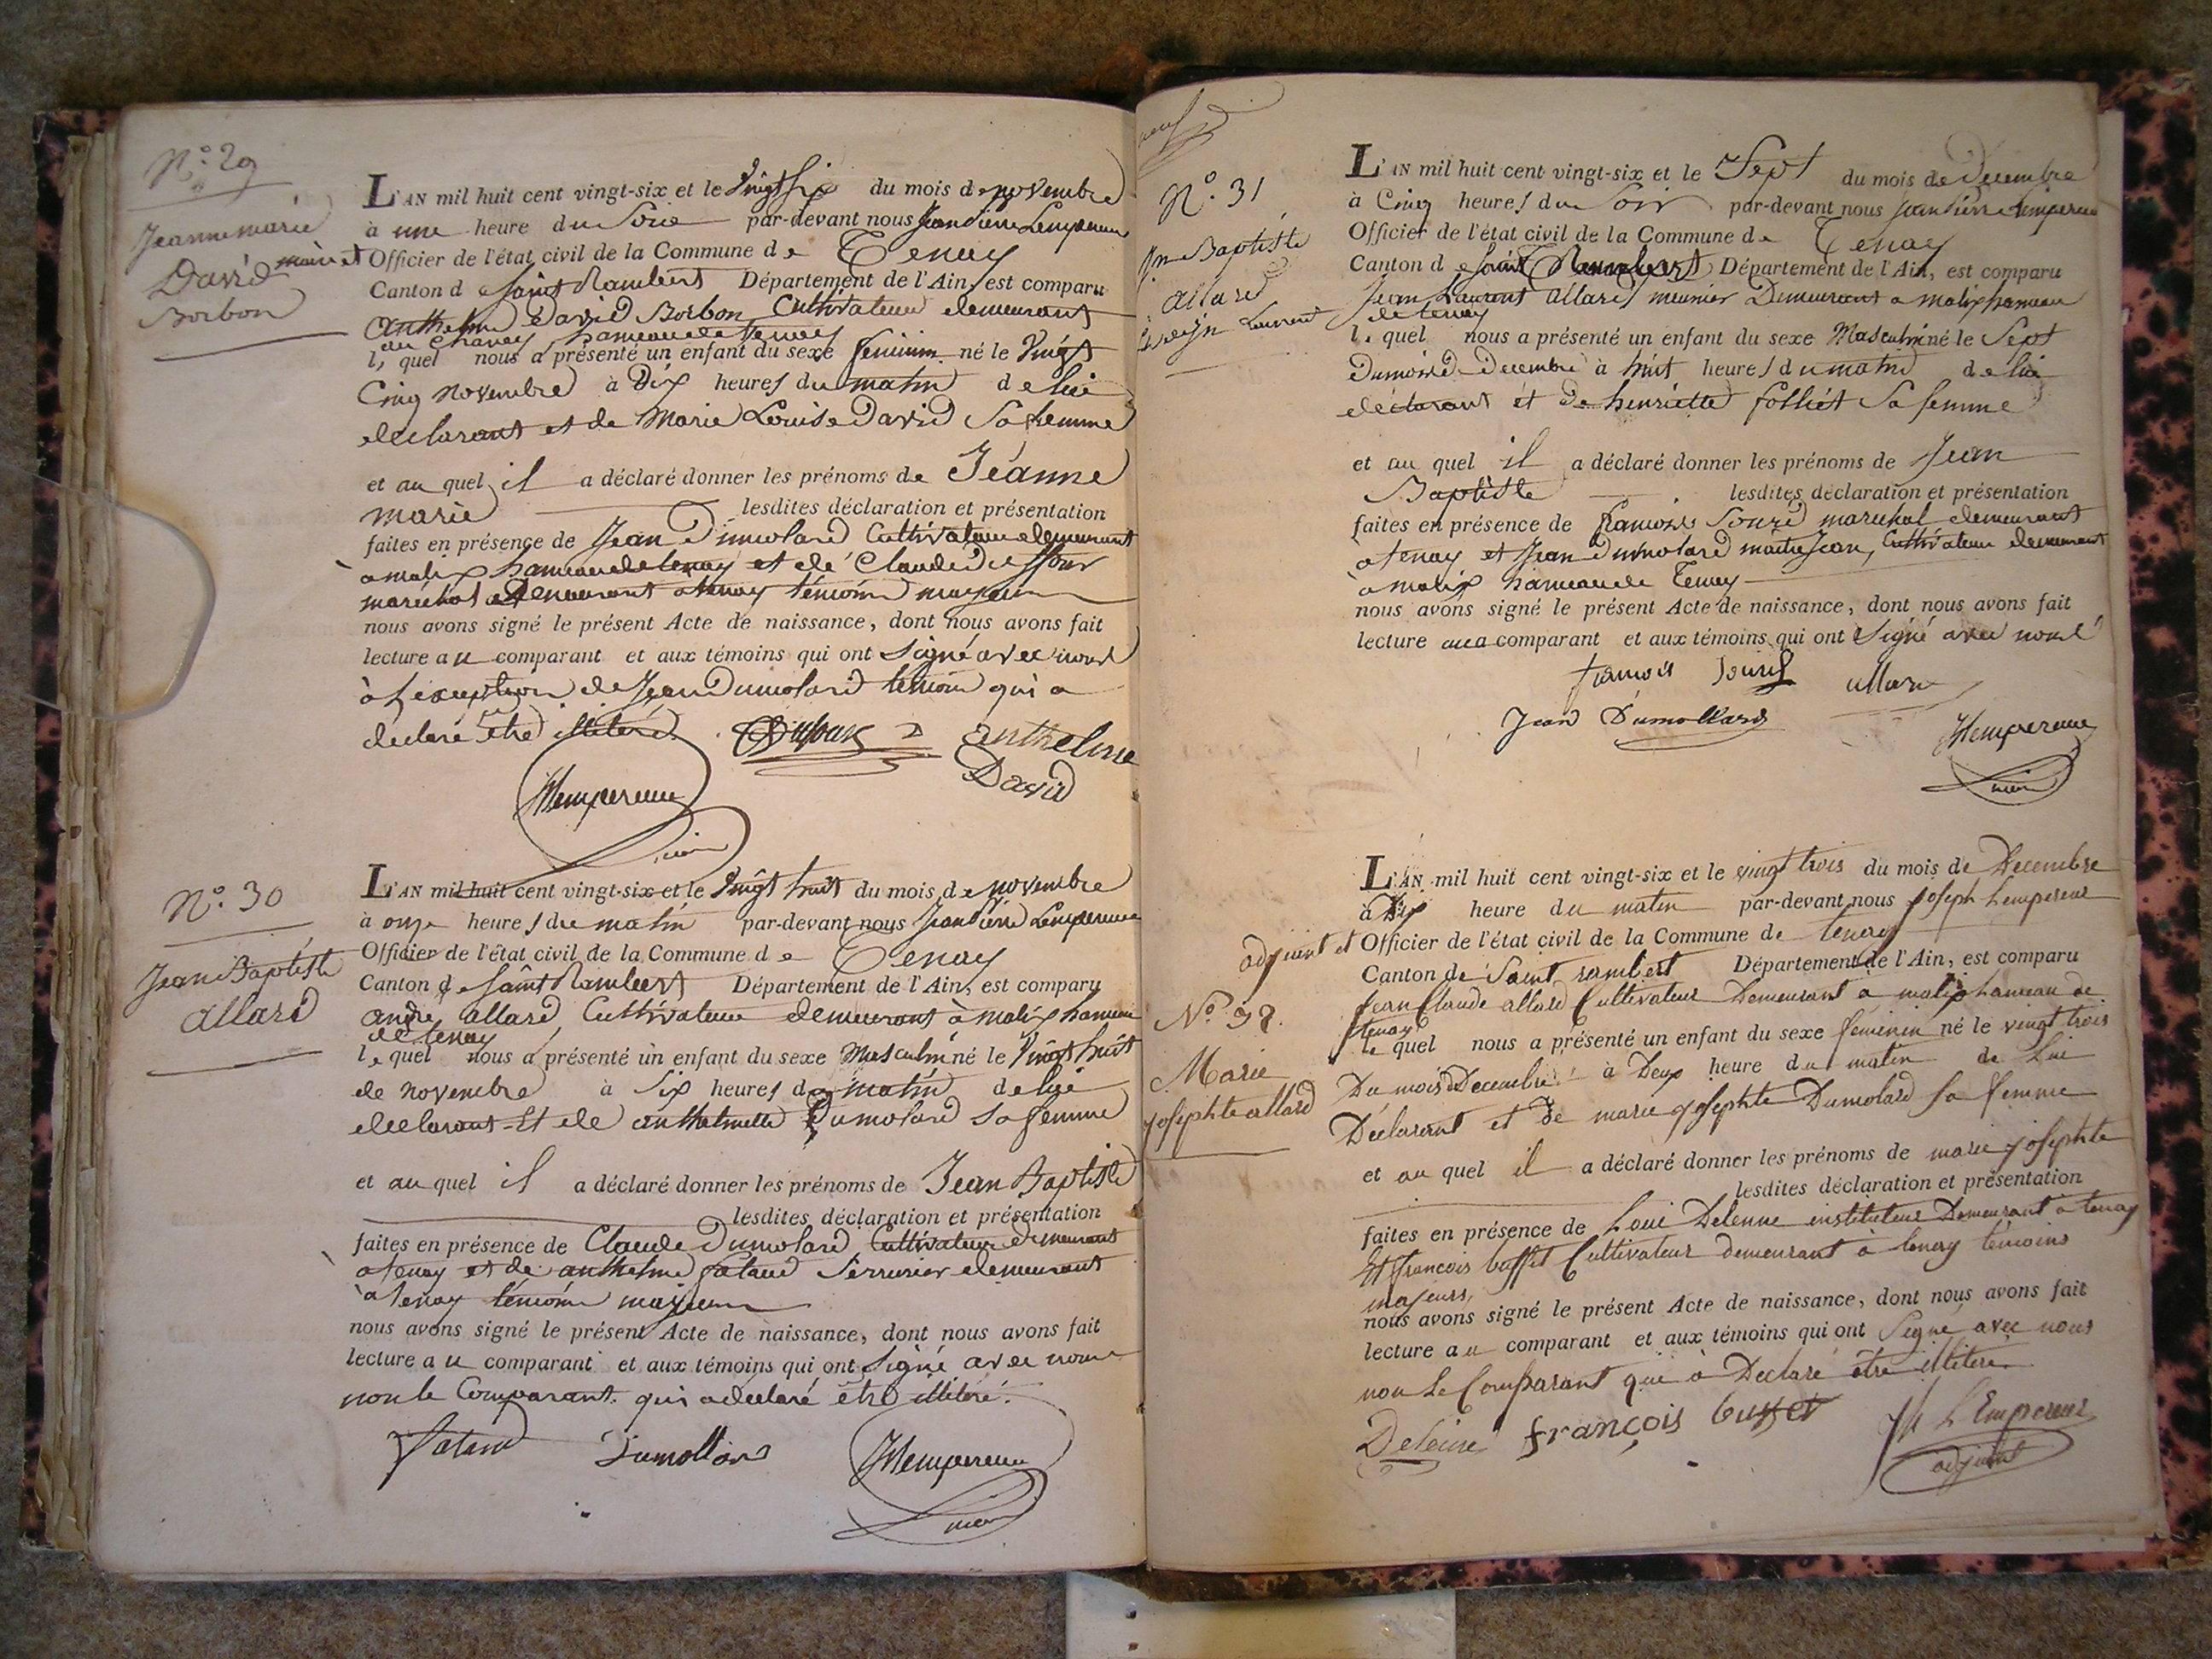 N.° 29
Jeanne marie
David
Borbon
L'AN mil huit cent vingt-six et le Vingt six du mois de novembre
à une heure du Soir par-devant nous Jean Pierre Lempereur
maire et Officier de l'état civil de la Commune de Tenay
Canton de Saint Rambert Département de l'Ain, est comparu
anthelme David Borbon Cultivateur demeurant
au Chaney hameau de Tenay
le quel nous a présenté un enfant du sexe feminin né le Vingt
Cinq novembre à Dix heures du matin de lui
declarant et de Marie Louise David Sa femme
et au quel il a déclaré donner les prénoms de Jeanne
marie lesdites déclaration et présentation
faites en présence de Jean Dumolard Cultivateur demeurant
à malix hameau de tenay et de Claude Dufour
maréchal demeurant a tenay témoins majeurs
nous avons signé le présent Acte de naissance, dont nous avons fait
lecture au comparant et aux témoins qui ont Signé avec nous
à l'exception de Jean Dumolard témoin qui a
declaré être illiteré
Dufour anthelme
David
JPLempereur
maire
N.° 30
Jean Baptiste
allard
L'AN mil huit cent vingt-six et le Vingt huit du mois de novembre
à onze heures du matin par-devant nous Jean Pierre Lempereur
Officier de l'état civil de la Commune de Tenay
Canton de Saint Rambert Département de l'Ain, est comparu
andré allard Cultivateur demeurant à malix hameau
de tenay
le quel nous a présenté un enfant du sexe Masculin né le Vingt huit
de novembre à Six heures du matin de lui
declarant Et de anthelmette Dumolard Sa femme
et au quel il a déclaré donner les prénoms de Jean Baptiste
lesdites déclaration et présentation
faites en présence de Claude Dumolard Cultivateur demeurant
a tenay et de anthelme fataud Serrurier demeurant
à tenay témoins majeurs
nous avons signé le présent Acte de naissance, dont nous avons fait
lecture au comparant et aux témoins qui ont Signé avec nous
non le Comparant qui a declaré être illiteré.
fataud Dumollard JPLempereur
maire
N.° 31
Jn Baptiste
allard
Laurent
L'AN mil huit cent vingt-six et le Sept du mois de Decembre
à Cinq heures du Soir par-devant nous Jean Pierre Lempereur
Officier de l'état civil de la Commune de Tenay
Canton de Saint Rambert Département de l'Ain, est comparu
Jean Laurent allard meunier Demeurant a malix hameau
de tenay
le quel nous a présenté un enfant du sexe Masculin né le Sept
du mois de Decembre à huit heures du matin de lui
déclarant et de henriette folliet Sa femme
et au quel il a déclaré donner les prénoms de Jean
Baptiste lesdites déclaration et présentation
faites en présence de francois Souzé maréchal demeurant
a tenay et Jean Dumolard maitre Jean, Cultivateur demeurant
à malix hameau de Tenay
nous avons signé le présent Acte de naissance, dont nous avons fait
lecture au comparant et aux témoins qui ont Signé avec nous
francois allard
Jean Dumollard JPLempereur
maire
N.° 32.
Marie
josephte allard
L'AN mil huit cent vingt-six et le vingt trois du mois de Decembre
à Dix heure du matin par-devant nous joseph Lempereur
adjoint et Officier de l'état civil de la Commune de tenay
Canton de Saint rambert Département de l'Ain, est comparu
Jean Claude allard Cultivateur Demeurant à malix hameau de
tenay
le quel nous a présenté un enfant du sexe féminin né le vingt trois
Du mois Decembre à Deux heure du matin de Lui
Déclarant et de marie josephte Dumolard sa femme
et au quel il a déclaré donner les prénoms de marie josephte
lesdites déclaration et présentation
faites en présence de Loui Delenne instituteur Demeurant à tenay
Et francois buffet Cultivateur demeurant à tenay témoins
majeurs,
nous avons signé le présent Acte de naissance, dont nous avons fait
lecture au comparant et aux témoins qui ont Signé avec nous
non Le Comparant qui à Declaré être illiteré
françois buffet Jh LEmpereur
adjoint